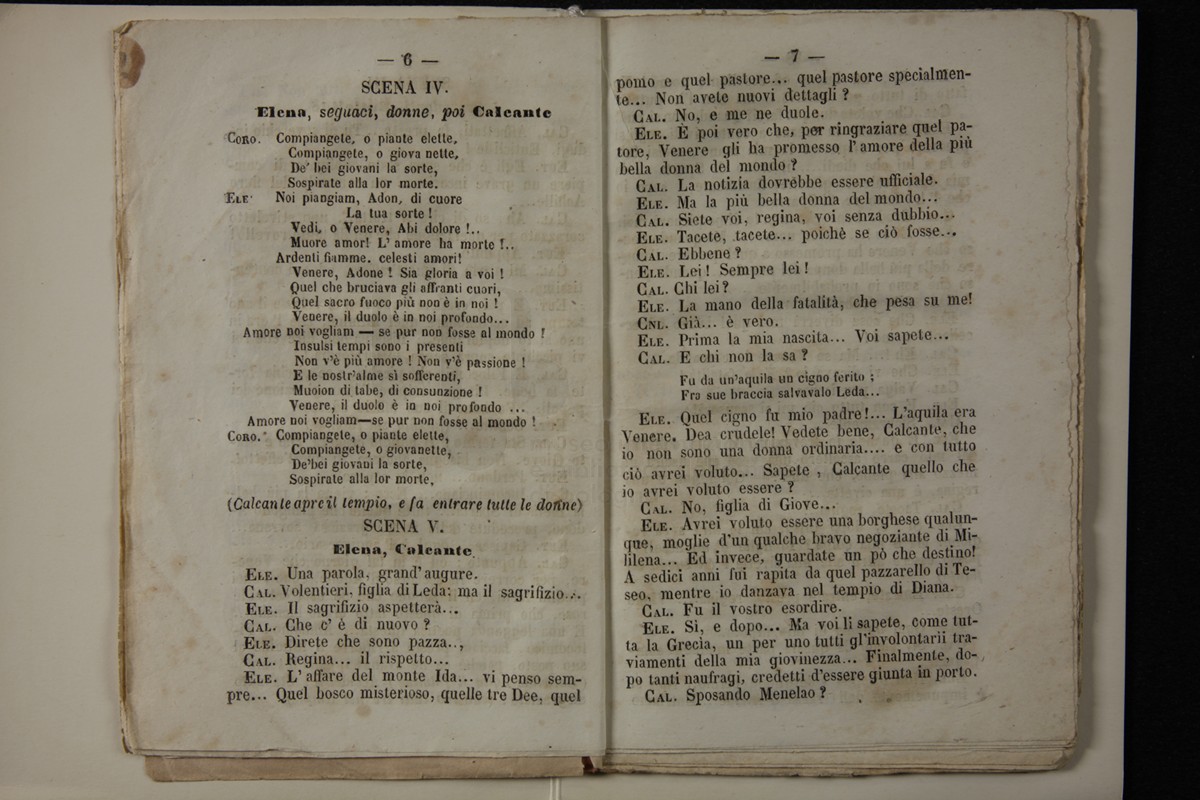 — 6 —
SCENA IV.
Elena, seguaci, donne, poi Calcante
CORO. Compiangete, o piante elette,
Compiangete, o giova nette,
De' bei giovani la sorte,
Sospirate alla lor morte.
ELE· Noi piangiam, Adon, di cuore
La tua sorte !
Vedi, o Venere, Ahi dolore !..
Muore amor! L' amore ha morte !..
Ardenti fiamme. celesti amori!
Venere, Adone ! Sia gloria a voi !
Quel che bruciava gli affranti cuori,
Quel sacro fuoco più non è in noi !
Venere, il duolo è in noi profondo...
Amore noi vogliam — se pur non fosse al mondo !
Insulsi tempi sono i presenti
Non v'è più amore ! Non v'è passione !
E le nostr'alme sì sofferenti,
Muoion di tabe, di consunzione !
Venere, il duolo è in noi profondo ...
Amore noi vogliam—se pur non fosse al mondo !
CORO. Compiangete, o piante elette,
Compiangete, o giovanette,
De'bei giovani la sorte,
Sospirate alla lor morte,
(Calcante apre il tempio, e fa entrare tutte le donne)
SCENA V.
Elena, Calcante
ELE. Una parola, grand' augure.
CAL. Volentieri, figlia di Leda: ma il sagrifizio...
ELE. Il sagrifizio aspetterà...
CAL. Che c' è di nuovo ?
ELE. Direte che sono pazza..,
CAL. Regina... il rispetto...
ELE. L' affare del monte Ida... vi penso sem-
pre... Quel bosco misterioso, quelle tre Dee, quel
— 7 —
pomo e quel pastore... quel pastore specialmen-
te... Non avete nuovi dettagli ?
CAL. No, e me ne duole.
ELE. È poi vero che, per ringraziare quel pa-
tore, Venere gli ha promesso l' amore della più
bella donna del mondo ?
CAL. La notizia dovrebbe essere ufficiale.
ELE. Ma la più bella donna del mondo...
CAL. Siete voi, regina, voi senza dubbio...
ELE. Tacete, tacete... poichè se ciò fosse...
CAL. Ebbene ?
ELE. Lei ! Sempre lei !
CAL. Chi lei ?
ELE. La mano della fatalità, che pesa su me!
CNL. Già... è vero.
ELE. Prima la mia nascita... Voi sapete...
CAL. E chi non la sa ?
Fu da un'aquila un cigno ferito ;
Fra sue braccia salvavalo Leda...
ELE. Quel cigno fu mio padre!... L'aquila era
Venere. Dea crudele! Vedete bene, Calcante, che
io non sono una donna ordinaria.... e con tutto
ciò avrei voluto... Sapete , Calcante quello che
io avrei voluto essere ?
CAL. No, figlia di Giove...
ELE. Avrei voluto essere una borghese qualun-
que, moglie d'un qualche bravo negoziante di Mi-
lilena... Ed invece, guardate un pò che destino!
A sedici anni fui rapita da quel pazzarello di Te-
seo, mentre io danzava nel tempio di Diana.
CAL. Fu il vostro esordire.
ELE. Sì, e dopo... Ma voi li sapete, come tut-
ta la Grecia, un per uno tutti gl'involontarii tra-
viamenti della mia giovinezza... Finalmente, do-
po tanti naufragi, credetti d'essere giunta in porto.
CAL. Sposando Menelao ?